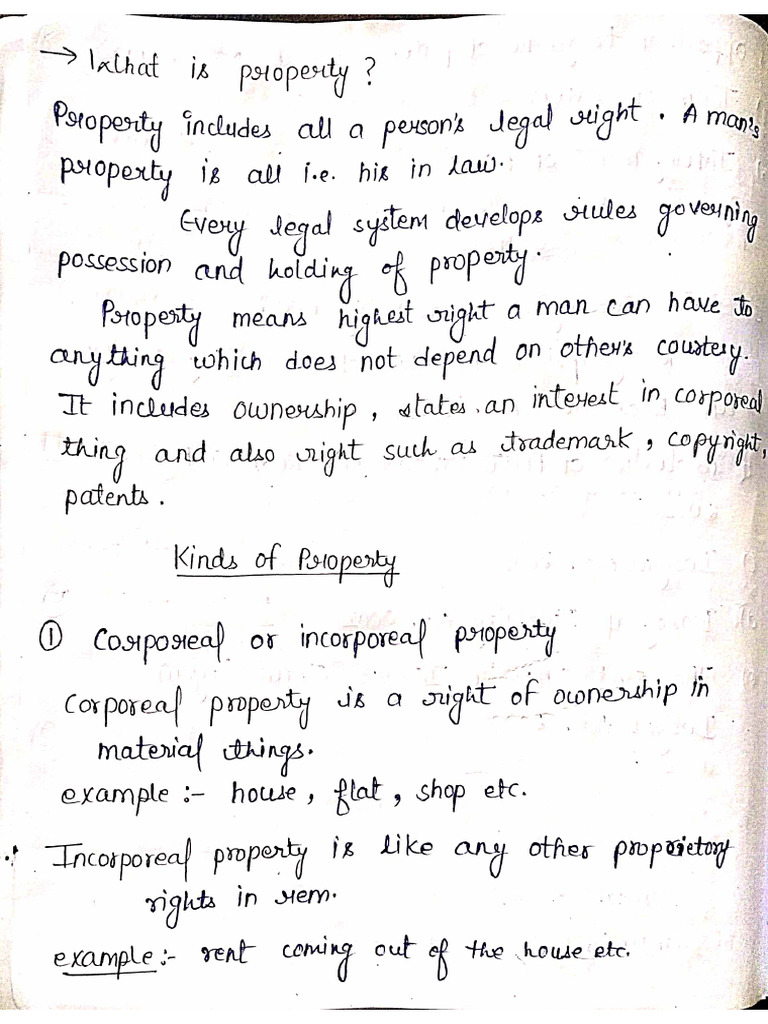 → What is property?
Property includes all a person's legal right. A man's
property is all i.e. his in law.
Every legal system develops rules governing
possession and holding of property.
Property means highest right a man can have to
anything which does not depend on other's courtesy.
It includes ownership, states an interest in corporeal
thing and also right such as trademark, copyright,
patents.
Kinds of Property
① Corporeal or incorporeal property
Corporeal property is a right of ownership in
material things.
example :- house, flat, shop etc.
Incorporeal property is like any other proprietory
rights in rem.
example :- rent coming out of the house etc.